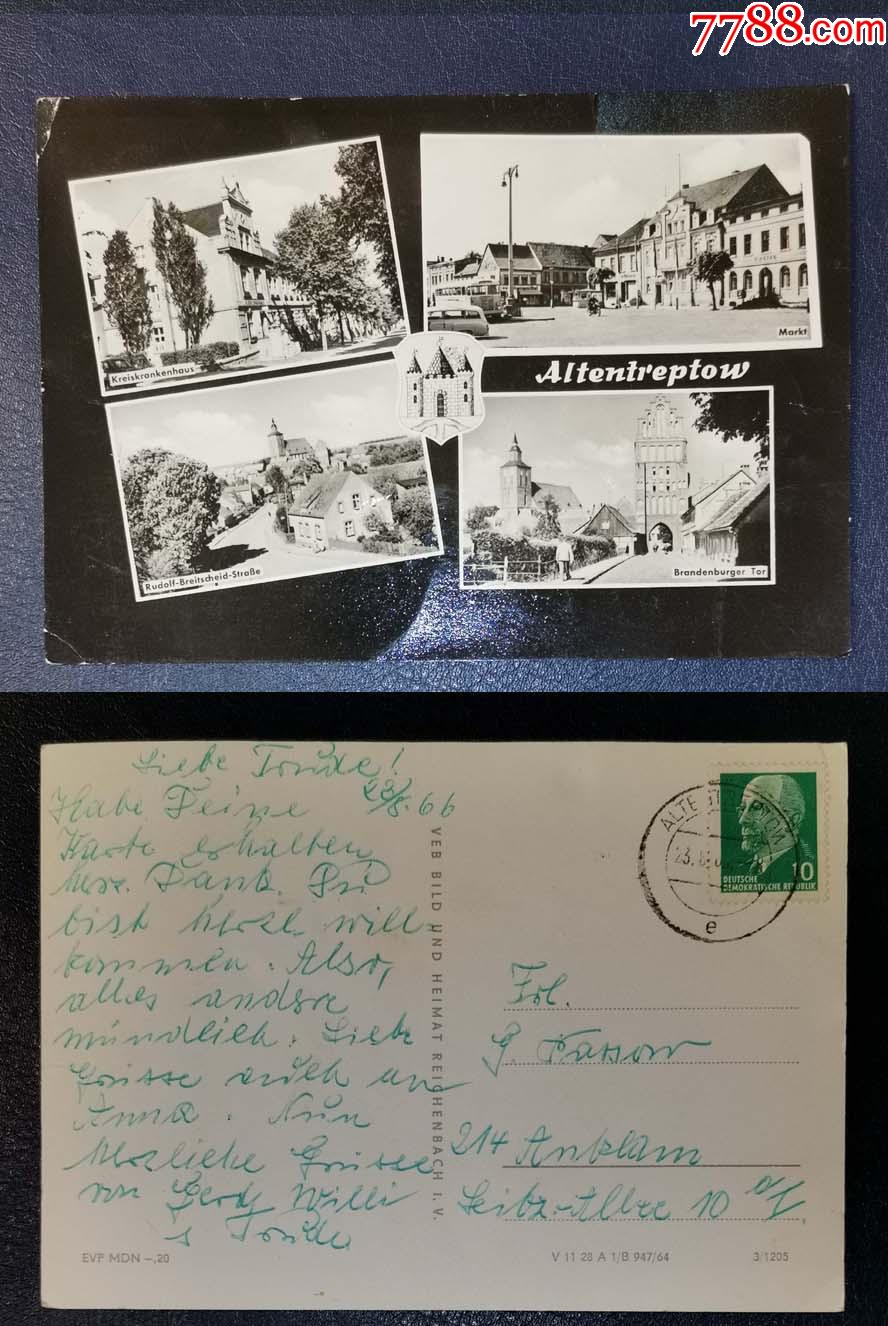 7788.com
Kreiskrankenhaus
Markt
Altentreptow
Rudolf-Breitscheid-Straße
Brandenburger Tor
Liebe Trude!
23/8.66
Habe Deine
Karte erhalten
herz. Dank. Du
bist herzl. will-
kommen. Also,
alles andere
mündlich. Liebe
Grüsse auch an
Anna. Nun
herzliche Grüsse
von Willi
Trude
VEB BILD UND HEIMAT REICHENBACH I. V.
ALTENTREPTOW
23.
e
10
DEUTSCHE
DEMOKRATISCHE REPUBLIK
Frl.
G.
214 Anklam
Allee 10
EVP MDN –,20
V 11 28 A 1/B 947/64
3/1205